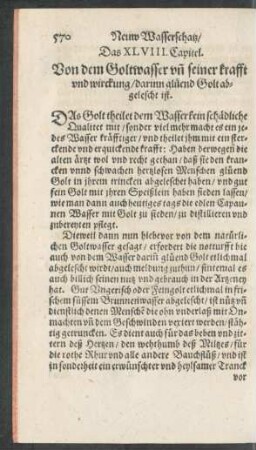 570 Neuw Wasserschatz/
Das XLVIII. Capitel.
Von dem Goltwasser vñ seiner krafft
vnd wirckung/darinn glüend Golt ab-
gelescht ist.
DAs Golt theilet dem Wasser kein schädliche
Qualitet mit/sonder viel mehr macht es ein je-
des Wasser kräfftiger/vnd theilet ihm mit ein ster-
ckende vnd erquickende krafft: Haben derwegen die
alten ärtzt wol vnd recht gethan/daß sie den kran-
cken vnnd schwachen hertzlosen Menschen glüend
Golt in jhrem trincken abgeleschet haben/vnd gut
fein Golt mit jhren Speißlein haben sieden lassen/
wie man dann auch heutiges tags die edlen Capau-
nen Wasser mit Golt zu sieden/zu distillieren vnd
zubereyten pflegt.
Dieweil dann nun hiebevor von dem natürli-
chen Goltwasser gesagt/erfordert die notturfft hie
auch von dem Wasser darin glüend Golt etlich mal
abgelescht wirdt/auch meldung zuthun/sintemal es
auch billich seinen nutz vnd gebrauch in der Artzeney
hat. Gut Vngerisch oder Feingolt etlich mal in fri-
schem süssem Brunnenwasser abgelescht/ist nütz vñ
dienstlich denen Menschẽ die ohn vnderlaß mit On-
machten vñ dem Geschwinden vexiert werden/stäh-
tig getruncken. Es dient auch für das beben vnd zit-
tern deß Hertzen/den wehthumb deß Miltzes/für
die rothe Rhur vnd alle andere Bauchflüß/vnd ist
in sonderheit ein erwünschter vnd heylsamer Tranck
vor